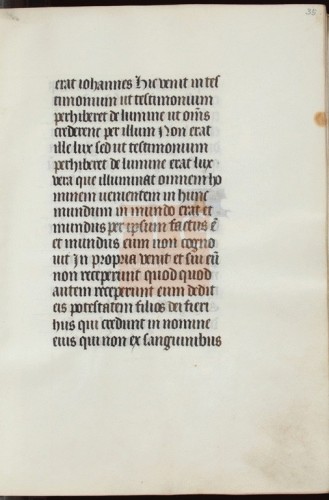 38
erat iohannes Hic venit in tes
timonium ut testimonium
perhiberet de lumine ut om̄s
crederent per illum Non erat
ille lux sed ut testimonium
perhiberet de lumine erat lux
vera que illuminat omnem ho
minem venientem in hunc
mundum in mundo erat et
mundus per ipsum factus ē
et mundus eum non cogno
uit In propria venit et sui eū
non receperunt quod quod
autem receperunt eum dedit
eis potestatem filios dei fieri
hiis qui credunt in nomine
eius qui non ex sanguinibus